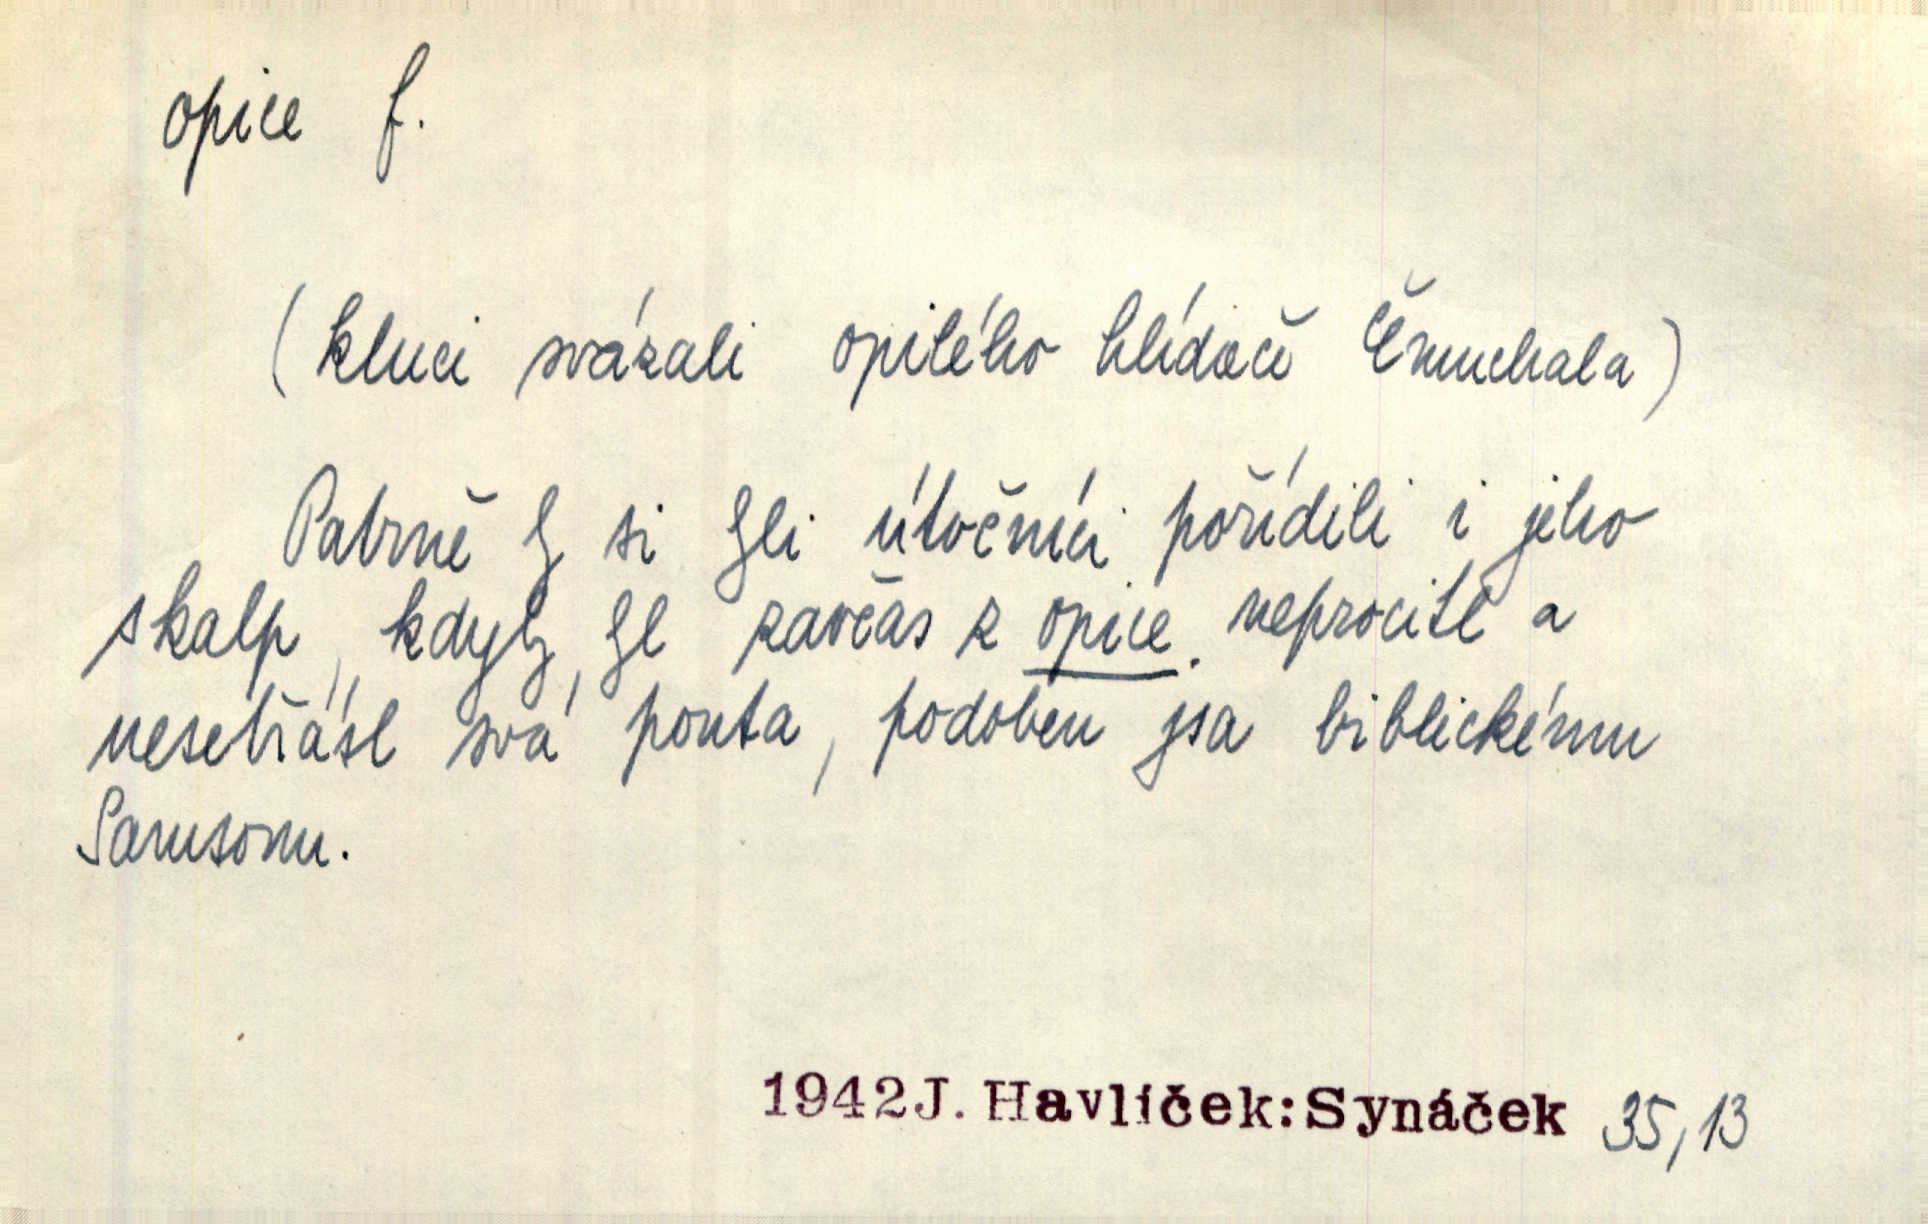 opice f.
(kluci svázali opilého hlídače Čmuchala)
Patrně by si byli útočníci pořídili i jeho
skalp, kdyby byl zavčas z opice neprocitl a
nesetřásl svá pouta, podoben jsa biblickému
Samsonu.
1942 J. Havlíček: Synáček 35,13